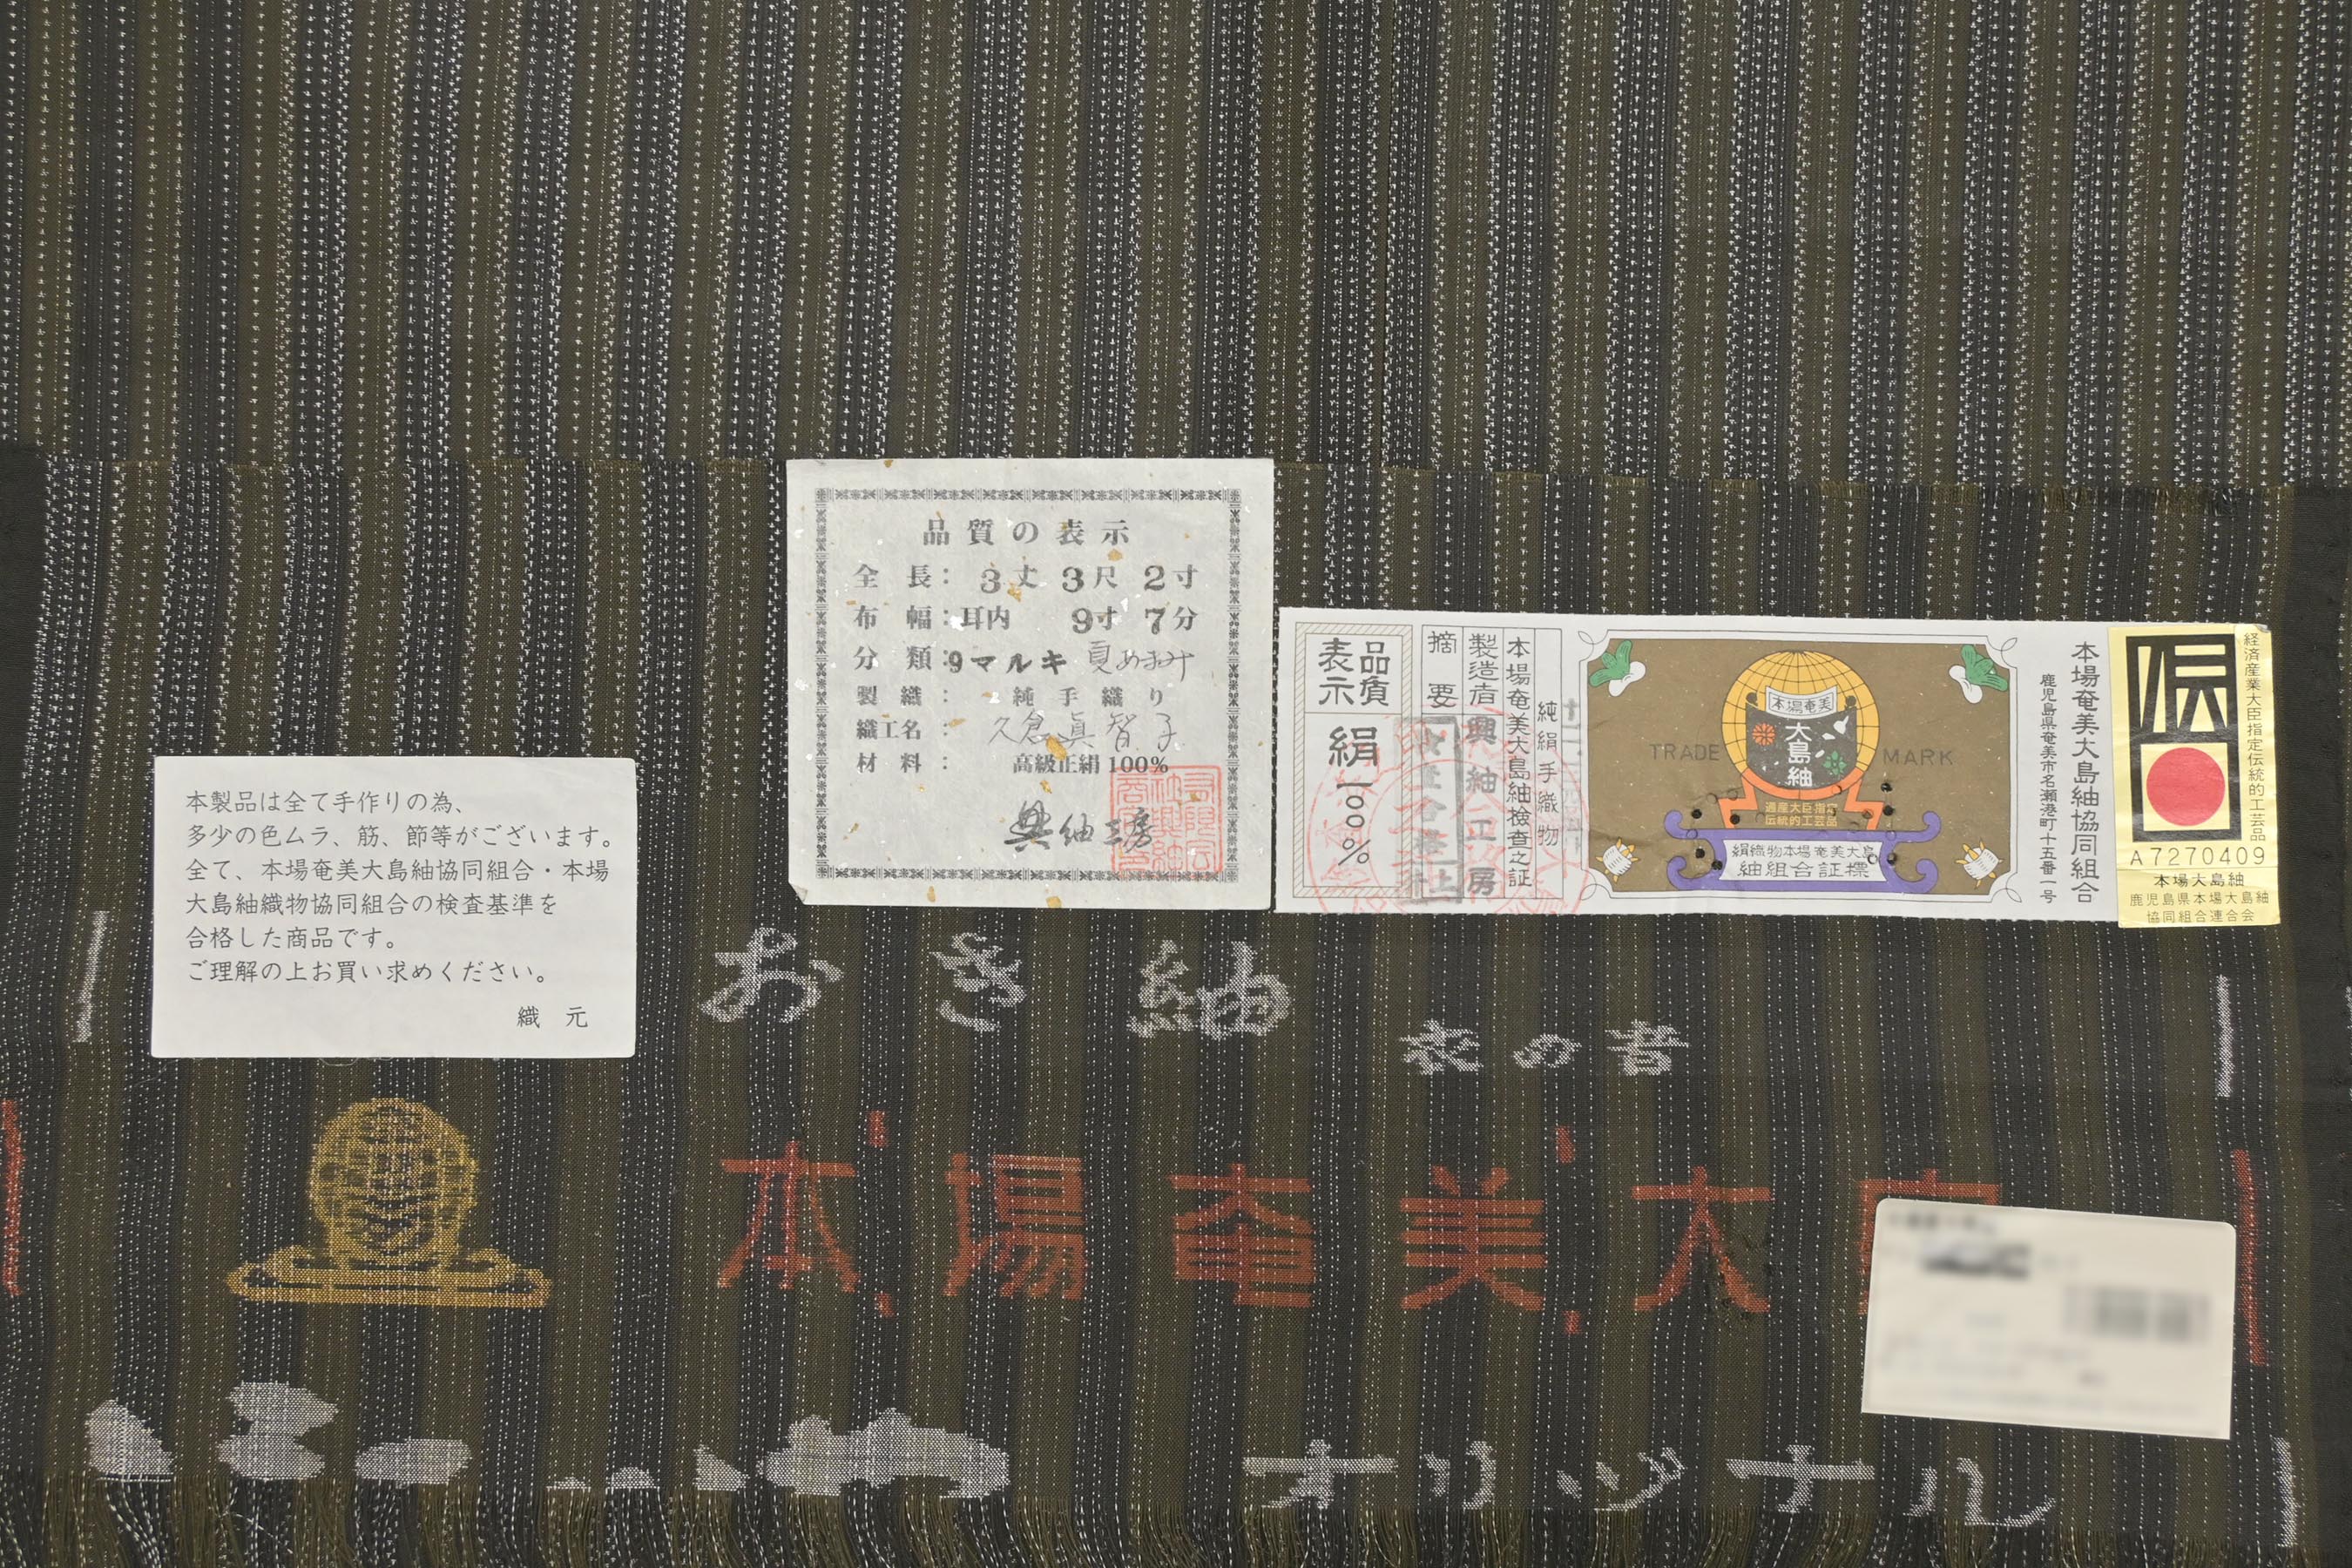 品質の表示
全長：3丈3尺2寸
布幅：耳内 9寸7分
分類：9マルキ 夏
製織：純手織り
織工名：久倉眞智子
材料：高級正絹100%
興紬工房
本製品は全て手作りの為、
多少の色ムラ、筋、節等がございます。
全て、本場奄美大島紬協同組合・本場
大島紬織物協同組合の検査基準を
合格した商品です。
ご理解の上お買い求めください。
織元
品質表示
絹一〇〇％
摘要
製造者 興紬工房
本場奄美大島紬検査之証
純絹手織物
TRADE MARK
本場奄美
大島紬
通産大臣指定
伝統的工芸品
絹織物本場奄美大島
紬組合証標
本場奄美大島紬協同組合
鹿児島県奄美市名瀬港町十五番一号
経済産業大臣指定伝統的工芸品
伝
A7270409
本場大島紬
鹿児島県本場大島紬
協同組合連合会
おき紬
衣の音
本場奄美大
オリジナル